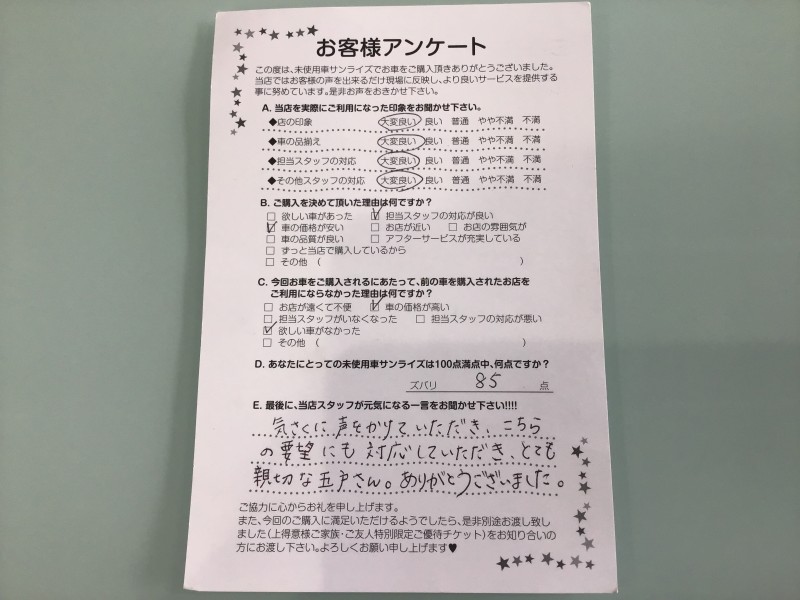 お客様アンケート
この度は、未使用車サンライズでお車をご購入頂きありがとうございました。
当店ではお客様の声を出来るだけ現場に反映し、より良いサービスを提供する
事に努めています。是非お声をおきかせ下さい。
A. 当店を実際にご利用になった印象をお聞かせ下さい。
◆店の印象 大変良い 良い 普通 やや不満 不満
◆車の品揃え 大変良い 良い 普通 やや不満 不満
◆担当スタッフの対応 大変良い 良い 普通 やや不満 不満
◆その他スタッフの対応 大変良い 良い 普通 やや不満 不満
B. ご購入を決めて頂いた理由は何ですか?
□ 欲しい車があった ☑ 担当スタッフの対応が良い
☑ 車の価格が安い □ お店が近い □ お店の雰囲気が
□ 車の品質が良い □ アフターサービスが充実している
□ ずっと当店で購入しているから
□ その他 ( )
C. 今回お車をご購入されるにあたって、前の車を購入されたお店を
ご利用にならなかった理由は何ですか?
□ お店が遠くて不便 ☑ 車の価格が高い
□ 担当スタッフがいなくなった □ 担当スタッフの対応が悪い
☑ 欲しい車がなかった
□ その他 ( )
D. あなたにとっての未使用車サンライズは100点満点中、何点ですか?
ズバリ 85 点
E. 最後に、当店スタッフが元気になる一言をお聞かせ下さい!!!!
気さくに声をかけていただき、こちら
の要望にも対応していただき、とても
親切な五戸さん。ありがとうございました。
ご協力に心からお礼を申し上げます。
また、今回のご購入に満足いただけるようでしたら、是非別途お渡し致し
ました(上得意様ご家族・ご友人特別限定ご優待チケット)をお知り合いの
方にお渡し下さい。よろしくお願い申し上げます♥